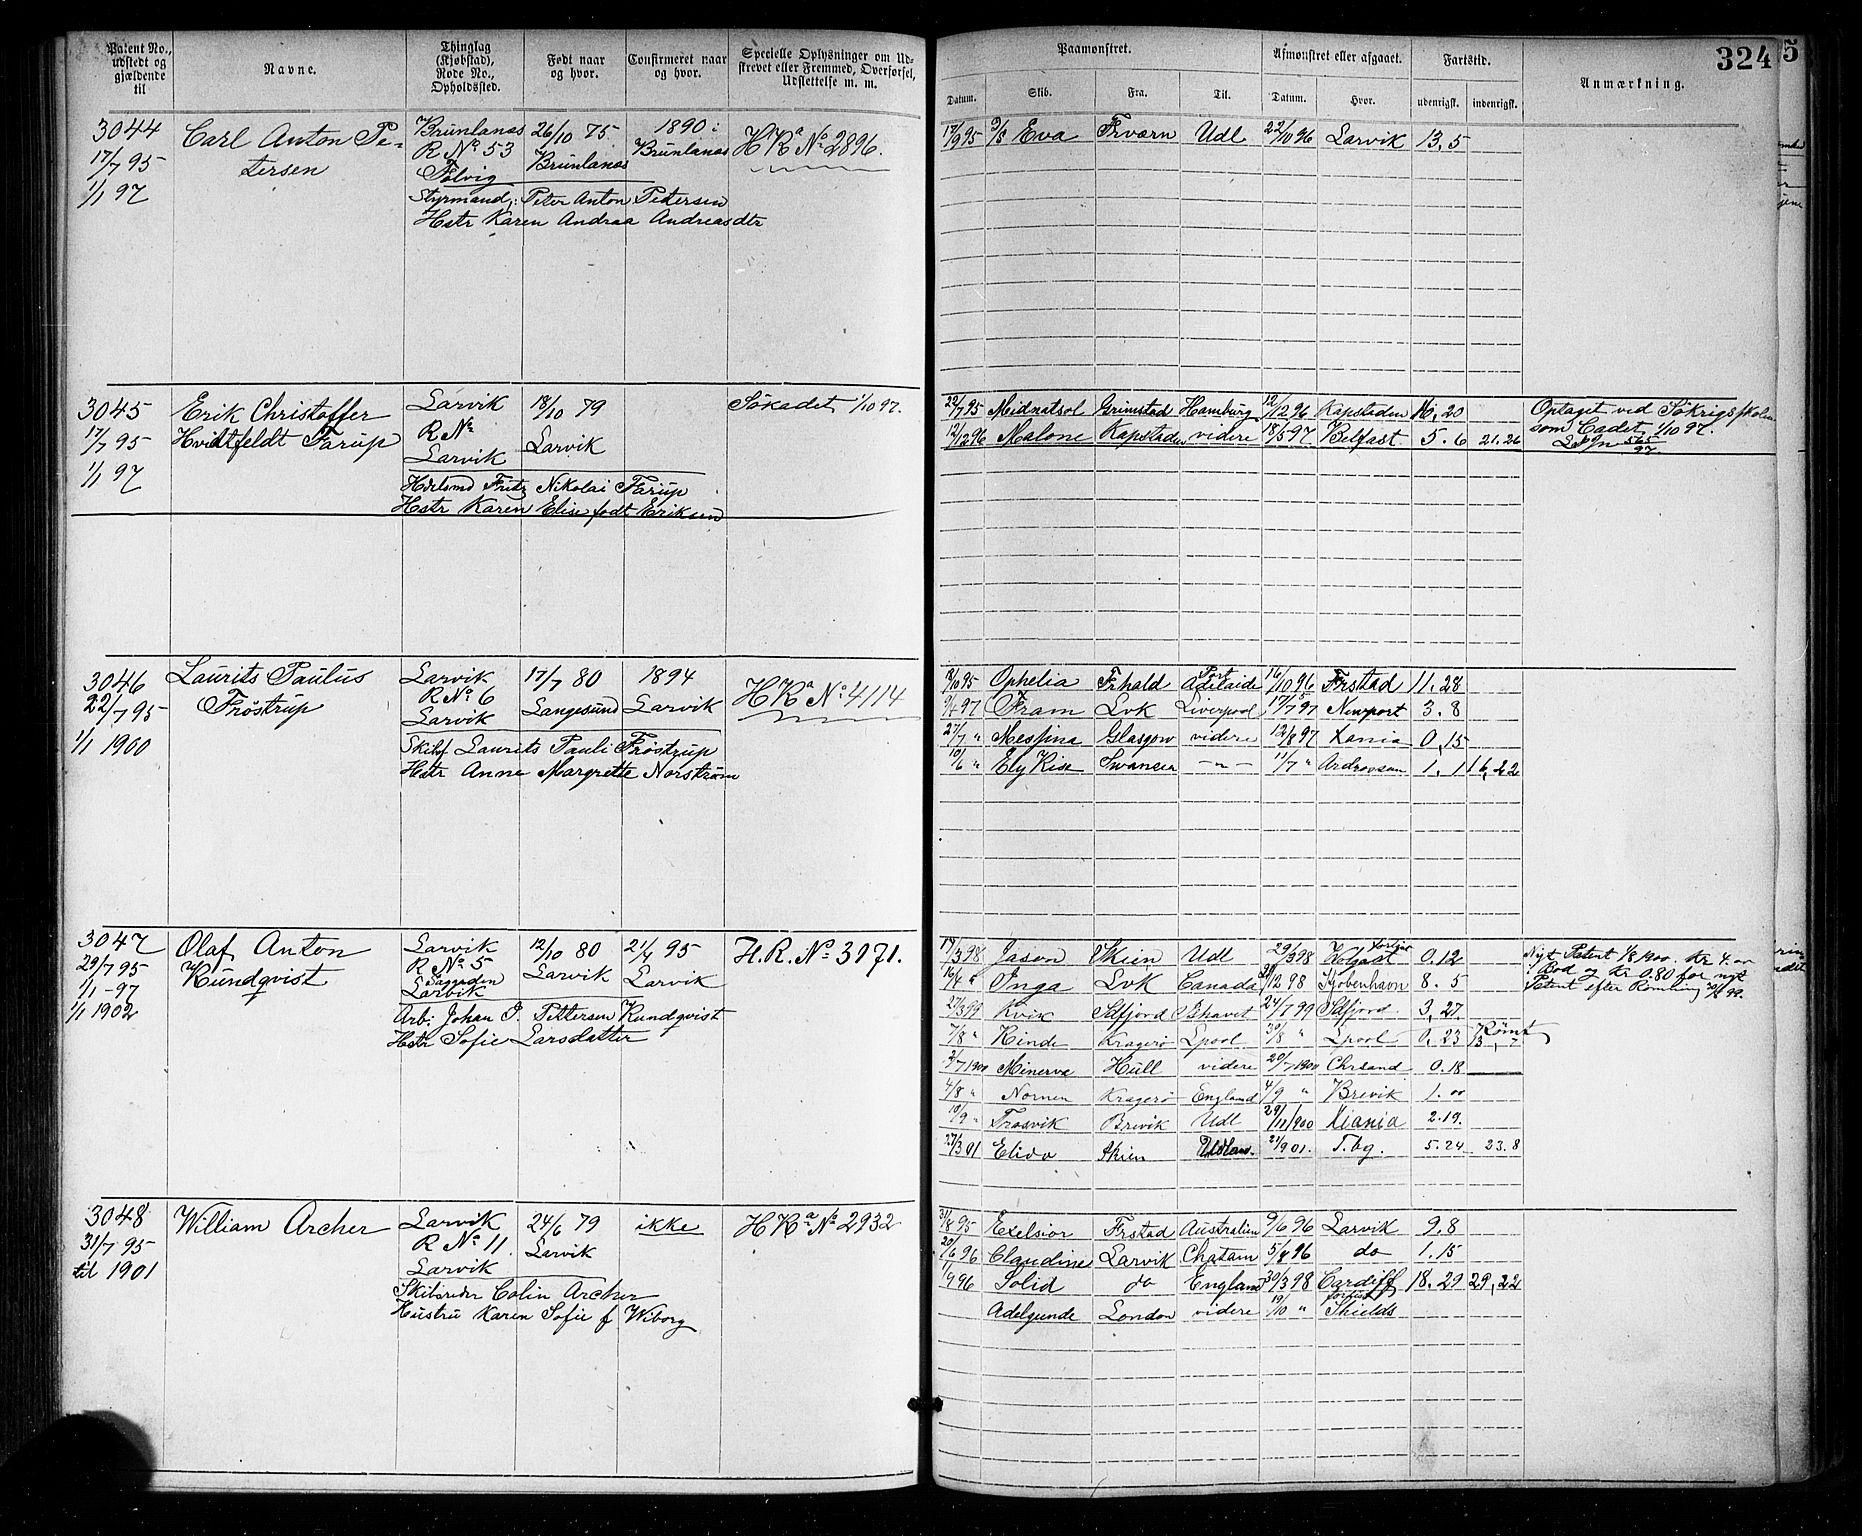 Patent No., udstedt og gjældende til
Navne.
Thinglag (Kjøbstad), Rode No., Opholdssted.
Født naar og hvor.
Confirmeret naar og hvor.
Specielle Oplysninger om Udskrevet eller Fremmed, Overførsel, Udslettelse m. m.
Paamønstret.
Afmønstret eller afgaaet.
Fartstid.
Anmærkning.
324
5
Datum. Skib. Fra. Til. Datum. Hvor. udenrigsk. indenrigsk.
3044
17/7 95
1/1 97
Carl Anton Pe-
tersen
Brunlanæs
R No 53
Følvig
26/10 75
Brunlanæs
1890 i
Brunlanæs
H Ra No 2896.
Styrmand, Peter Anton Pettersen
Hstr Karen Andraa Andreasdtr
17/9 95 Eva Frværn Udl 22/10 96 Larvik 13,5
3045
17/7 95
1/1 97
Erik Christoffer
Hvidtfeldt Farup
Larvik
R No
Larvik
18/10 79
Larvik
Søkadet 1/10 97.
Fritz Nikolai Farup
Hstr Karen Elise født Eriksen
22/7 95 Midnatsol Grimstad Hamburg 12/12 96 Kapstaden 16,20
12/12 96 Malone Kapstaden videre 18/5 97 Belfast 5.6 21.26
Optaget ved Søkrigsskolen
som Cadet 1/10 97.
3046
22/7 95
1/1 1900
Laurits Paulus
Frøstrup
Larvik
R No 6
Larvik
17/7 80
Langesund
1894
Larvik
H Ra No 4114
Skibsf Laurits Pauli Frøstrup
Hstr Anne Margrette Norstrøm
18/10 95 Ophelia Frhald Port Adelaide 16/10 96 Frstad 11.28
Fram Lvk Liverpool 17/7 97 Newport 3.8
27/7 " Messina Glasgow videre 12/8 97 Xania 0,15
10/6 " Ely Rise Swansea — " — 11/7 " Ardrossan 1.1 16,22
3047
29/7 95
1/1 - 97
1/1 1902
Olaf Anton
Kundqvist
Larvik
R No 5
Larvik
12/10 80
Larvik
21/4 95
Larvik
H.R. No 3071.
Arb: Johan P. Pettersen Kundqvist
Hstr Sofie Larsdatter
17/3 98 Jason Skien Udl 29/3 98 Holgast 0.12
16/4 " Inga Lvk Canada 12 98 Kjøbenhavn 8.5
27/3 99 Kvik Sdfjord Ishavet 24/7 99 Sdfjord 3,27.
7/8 " Rinde Kragerø Lpool 30/8 " Lpool 0,23 Rømt
2/7 1900 Minerva Hull videre 20/7 1900 Chrsand 0.18
4/8 " Nornen Kragerø England 4/9 " Brevik 1.00
10/9 " Trosvik Brevik Udl 29/11 1900 Xiania 2.19.
27/3 01 Elida Skien 21/9 01. T.bg. 5.24 23.8
Nyt Patent 1/8 1900. Kr 4.00
i Bod og Kr 0.80 for nyt
Patent efter Rømning 30/8 99.
3048
31/7 95
til 1901
William Archer
Larvik
R No 11
Larvik
24/6 79
Larvik
ikke
H Ra No 2932
Skibsreder Colin Archer
Hustru Karen Sofie f Wiborg
31/8 95 Exelsior Frstad Australien 9/6 96 Larvik 9.8
20/6 96 Claudine Larvik Chatam 5/8 96 do 1.15
1/9 96 Solid do England 30/3 98 Cardiff 18.29 29,22
Adelgunde London videre 19/10 " Shields